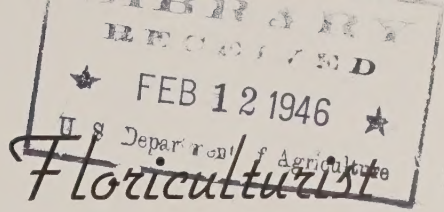 LIBRARY
RECEIVED
★ FEB 12 1946 ★
U S Department of Agriculture
Floriculturist